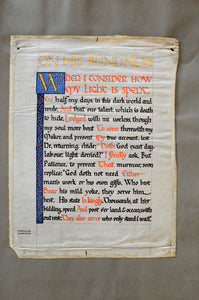 ON HIS BLINDNESS
WHEN I CONSIDER HOW
MY LIGHT IS SPENT,
Ere half my days, in this dark world and
wide, And that one talent, which is death
to hide, Lodged with me useless, though
my soul more bent To serve therewith my
Maker, and present My true account, lest
He, returning, chide; "Doth God exact day-
labour, light denied?" I fondly ask. But
Patience, to prevent That murmur, soon
replies: "God doth not need Either
man's work or his own gifts. Who best
Bear his mild yoke, they serve him
best: His state Is kingly. Thousands, at his
bidding, speed And post o'er land & ocean, with
out rest; They also serve who only stand & wait."